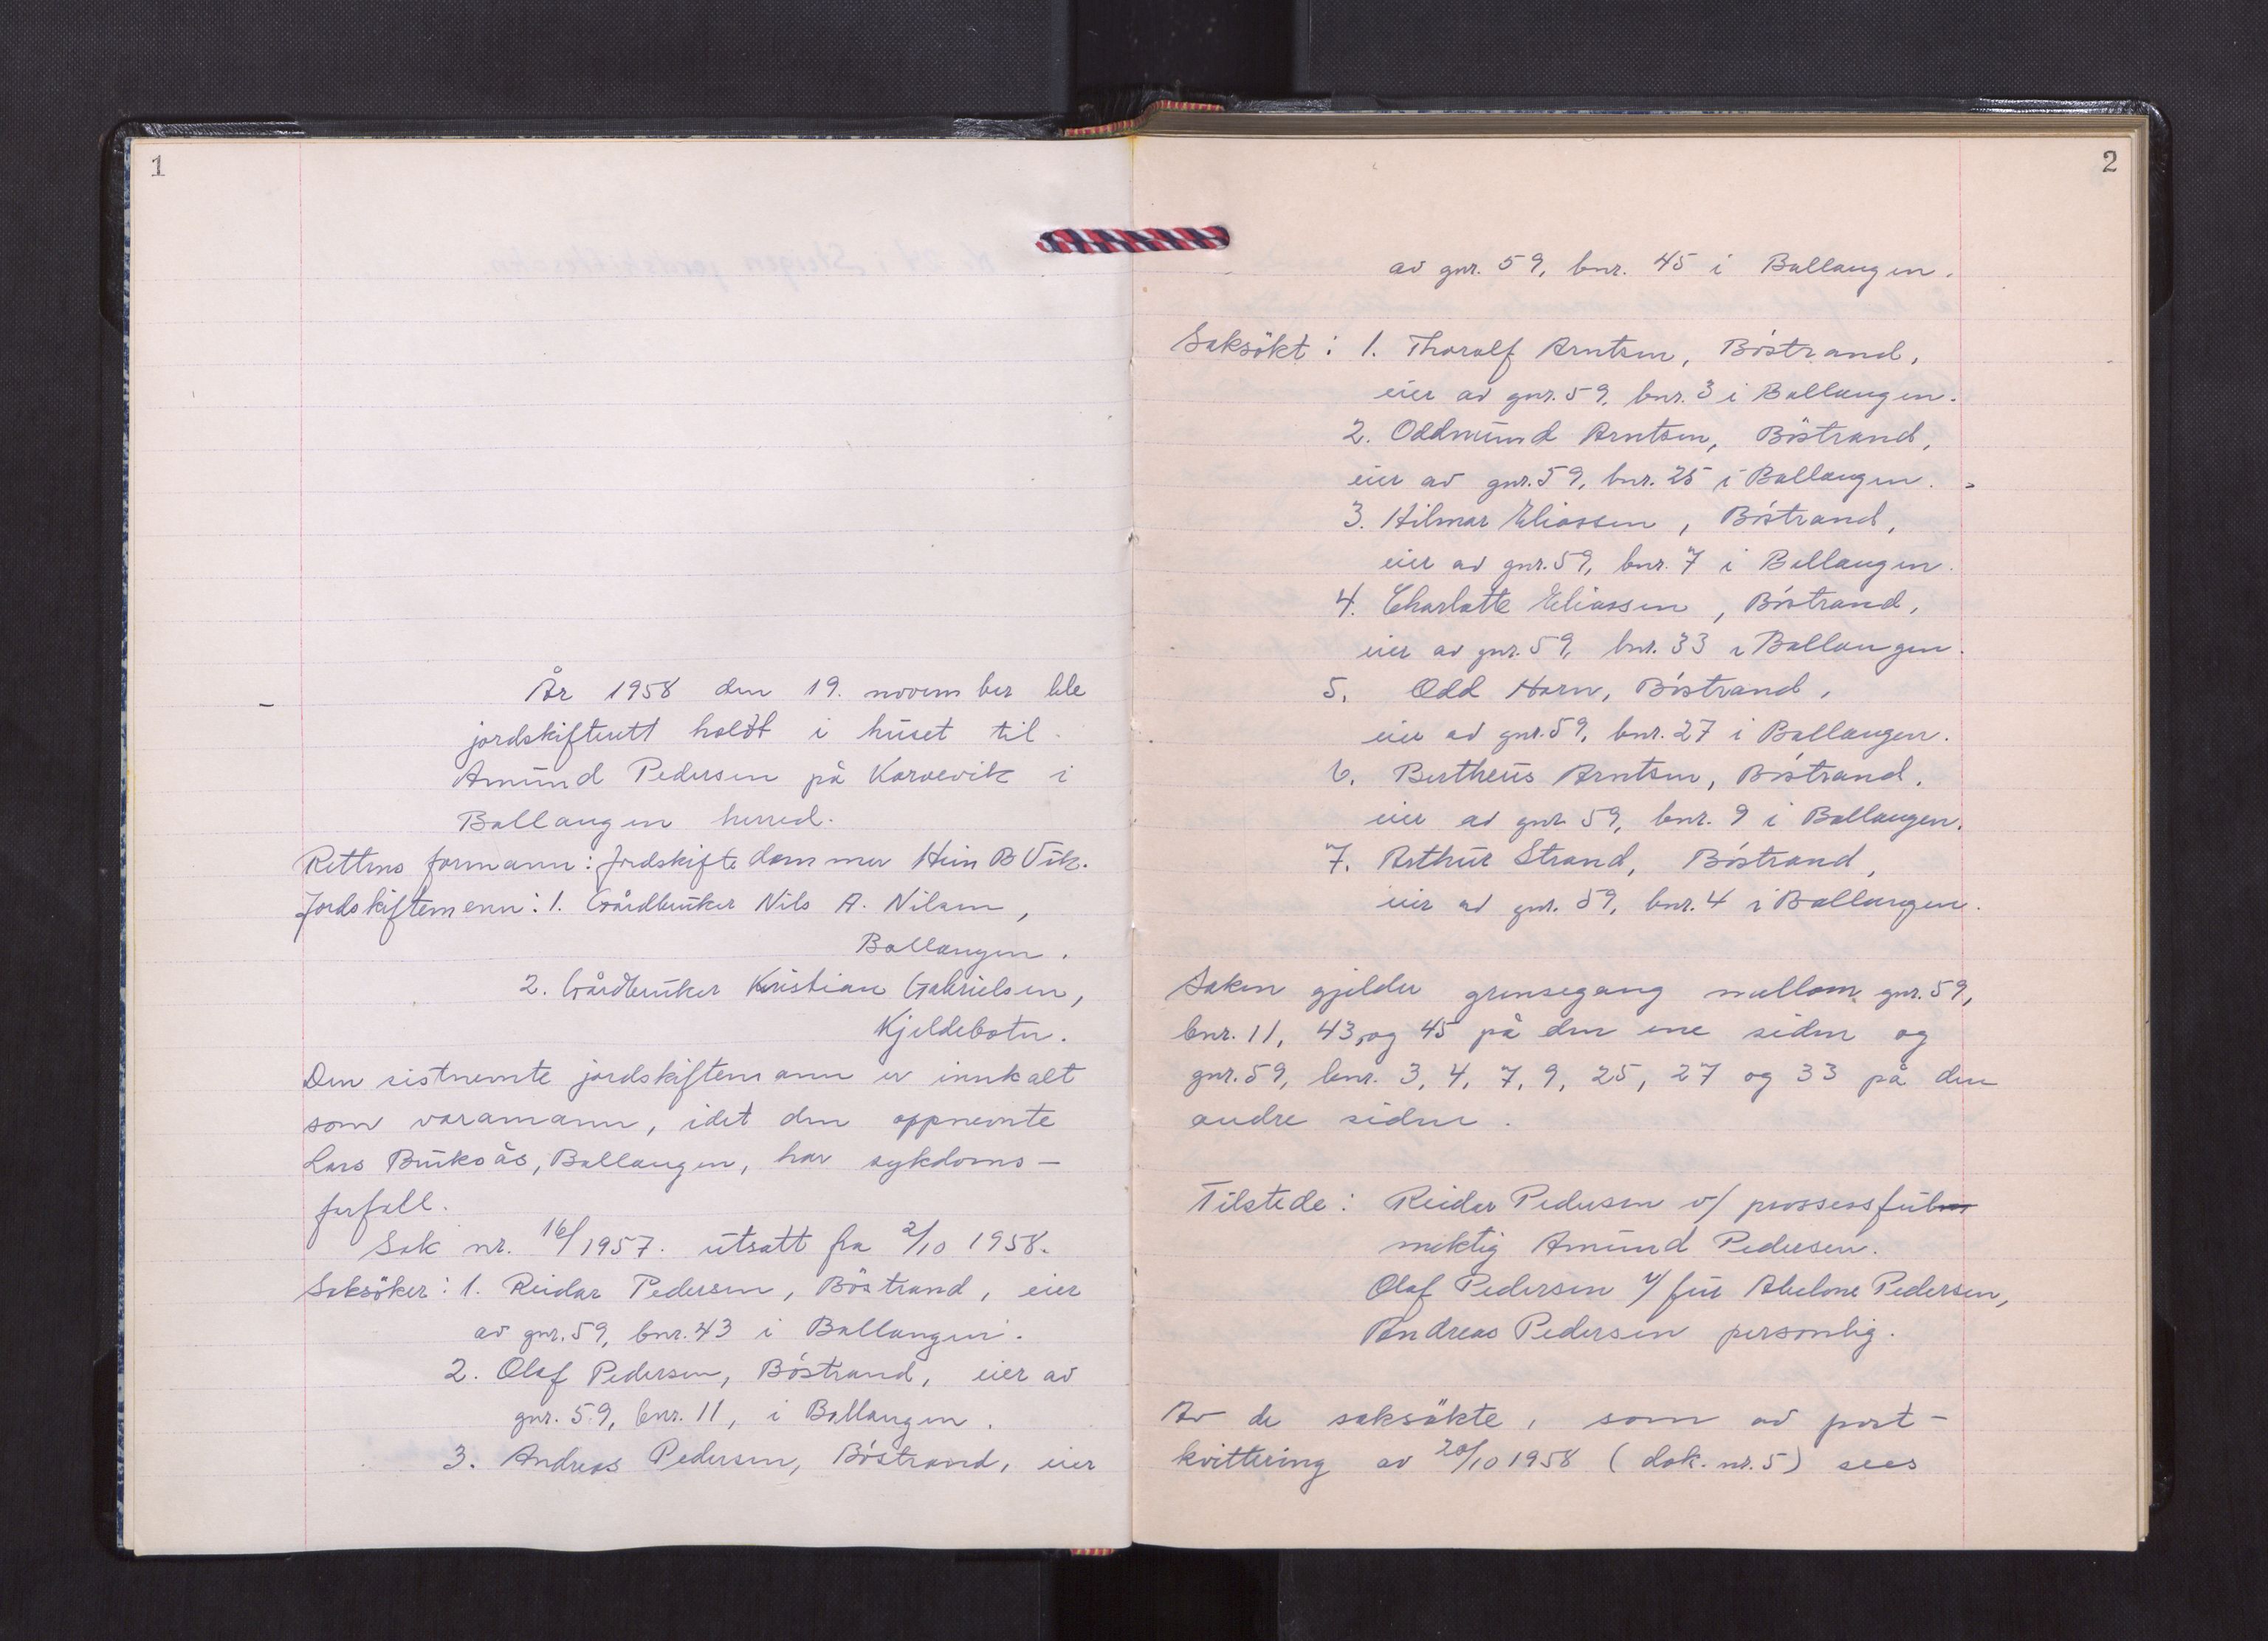 1
År 1958 den 19. november ble
jordskifterett holdt i huset til
Amund Pedersen på Karvevik i
Ballangen herred.
Rettens formann: Jordskiftedommer Hein B Vik.
Jordskiftemenn: 1. Gårdbruker Nils A. Nilsen,
Ballangen.
2. Gårdbruker Kristian Gabrielsen,
Kjeldebotn.
Den sistnevnte jordskiftemann er innkalt
som varamann, idet den oppnevnte
Lars Bruksås, Ballangen, har sykdoms-
forfall.
Sak nr. 16/1957. utsatt fra 2/10 1958.
Saksöker: 1. Reidar Pedersen, Böstrand, eier
av gnr. 59, bnr. 43 i Ballangen.
2. Olaf Pedersen, Böstrand, eier av
gnr. 59, bnr. 11, i Ballangen.
3. Andreas Pedersen, Böstrand, eier
2
av gnr. 59, bnr. 45 i Ballangen.
Saksökt: 1. Thoralf Arntsen, Böstrand,
eier av gnr. 59, bnr. 3 i Ballangen.
2. Oddmund Arntsen, Böstrand,
eier av gnr. 59, bnr. 25 i Ballangen.
3. Hilmar Eliassen, Böstrand,
eier av gnr. 59, bnr. 7 i Ballangen.
4. Charlotte Eliassen, Böstrand,
eier av gnr. 59, bnr. 33 i Ballangen.
5. Odd Horn, Böstrand,
eier av gnr. 59, bnr. 27 i Ballangen.
6. Bertheus Arntsen, Böstrand,
eier av gnr 59, bnr. 9 i Ballangen.
7. Arthur Strand, Böstrand,
eier av gnr. 59, bnr. 4 i Ballangen.
Saken gjelder grensegang mellom gnr. 59,
bnr. 11, 43, og 45 på den ene siden og
gnr. 59, bnr. 3, 4, 7, 9, 25, 27 og 33 på den
andre siden.
Tilstede: Reidar Pedersen v/ prossessful
mektig Amund Pedersen.
Olaf Pedersen v/ fru Abelone Pedersen,
Andreas Pedersen personlig.
Av de saksökte, som av post-
kvittering av 20/10 1958 (dok. nr. 5) sees